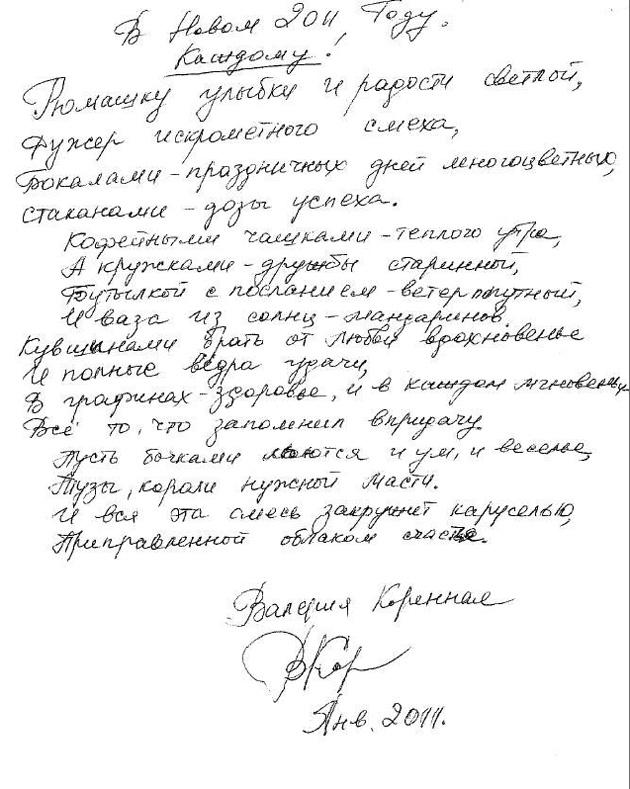 В Новом 2011, Году.
Каждому!
Рюмашку улыбки и радости светлой,
Фужер искрометного смеха,
Бокалами - праздничных дней многоцветных,
стаканами - дозы успеха.
Кофейными чашками - теплого утра,
А кружками - дружбы старинной,
Бутылкой с посланием - ветер попутный,
И ваза из солнц - мандаринов.
Кувшинами брать от любви вдохновенье
И полные ведра удачи,
В графинах - здоровье, и в каждом мгновеньи
Всё то, что запомнил впридачу.
Пусть бочками льются и ум, и веселье,
Тузы, короли нужной масти.
И вся эта смесь закружит каруселью,
Приправленной облаком счастья.
Валерия Коренная
ВКор
Янв. 2011.